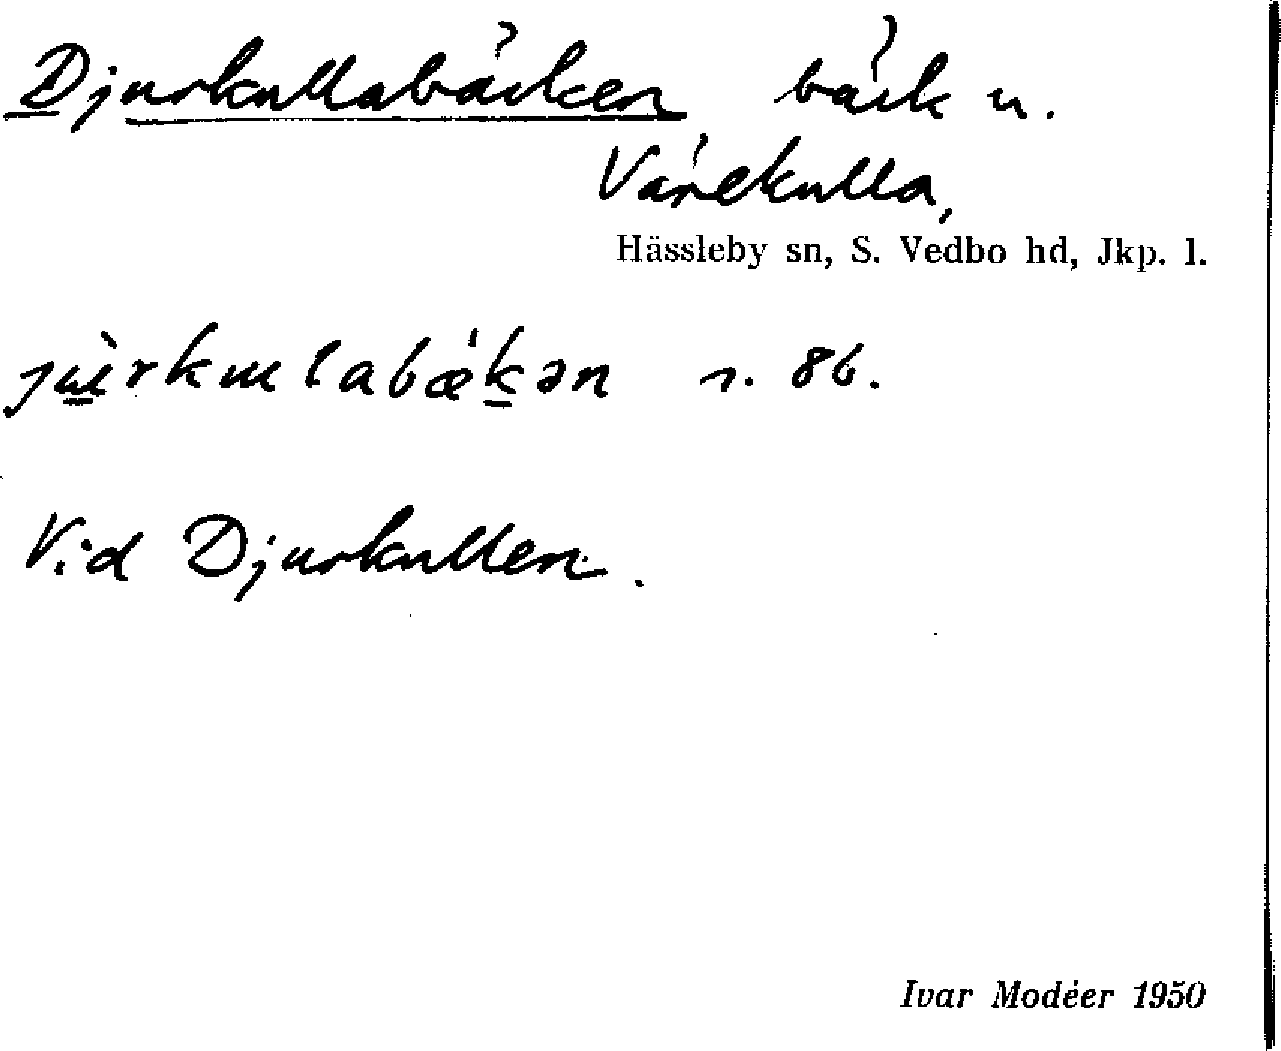 Djurkullabäcken bäck u.
Värekulla,
Hässleby sn, S. Vedbo hd, Jkp. l.
s. 86.
Vid Djurkullen.
Ivar Modéer 1950